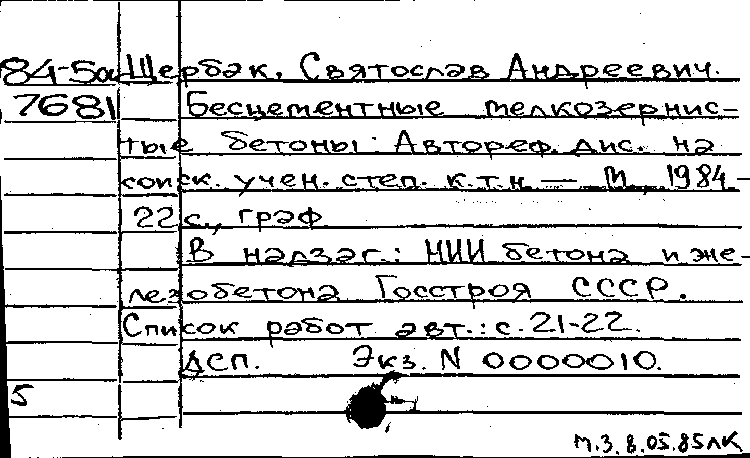 84-5а Щербак, Святослав Андреевич.
7681 Бесцементные мелкозернис-
тые бетоны: Автореф. дис. на
соиск. учен. степ. к.т.н. — М, 1984 -
22 с., граф
В надзаг.: НИИ бетона и же-
лезобетона Госстроя СССР.
Список работ авт.: с. 21-22.
ДСП. Экз. N 0000010.
5
М.З. 8.05.85 ЛК